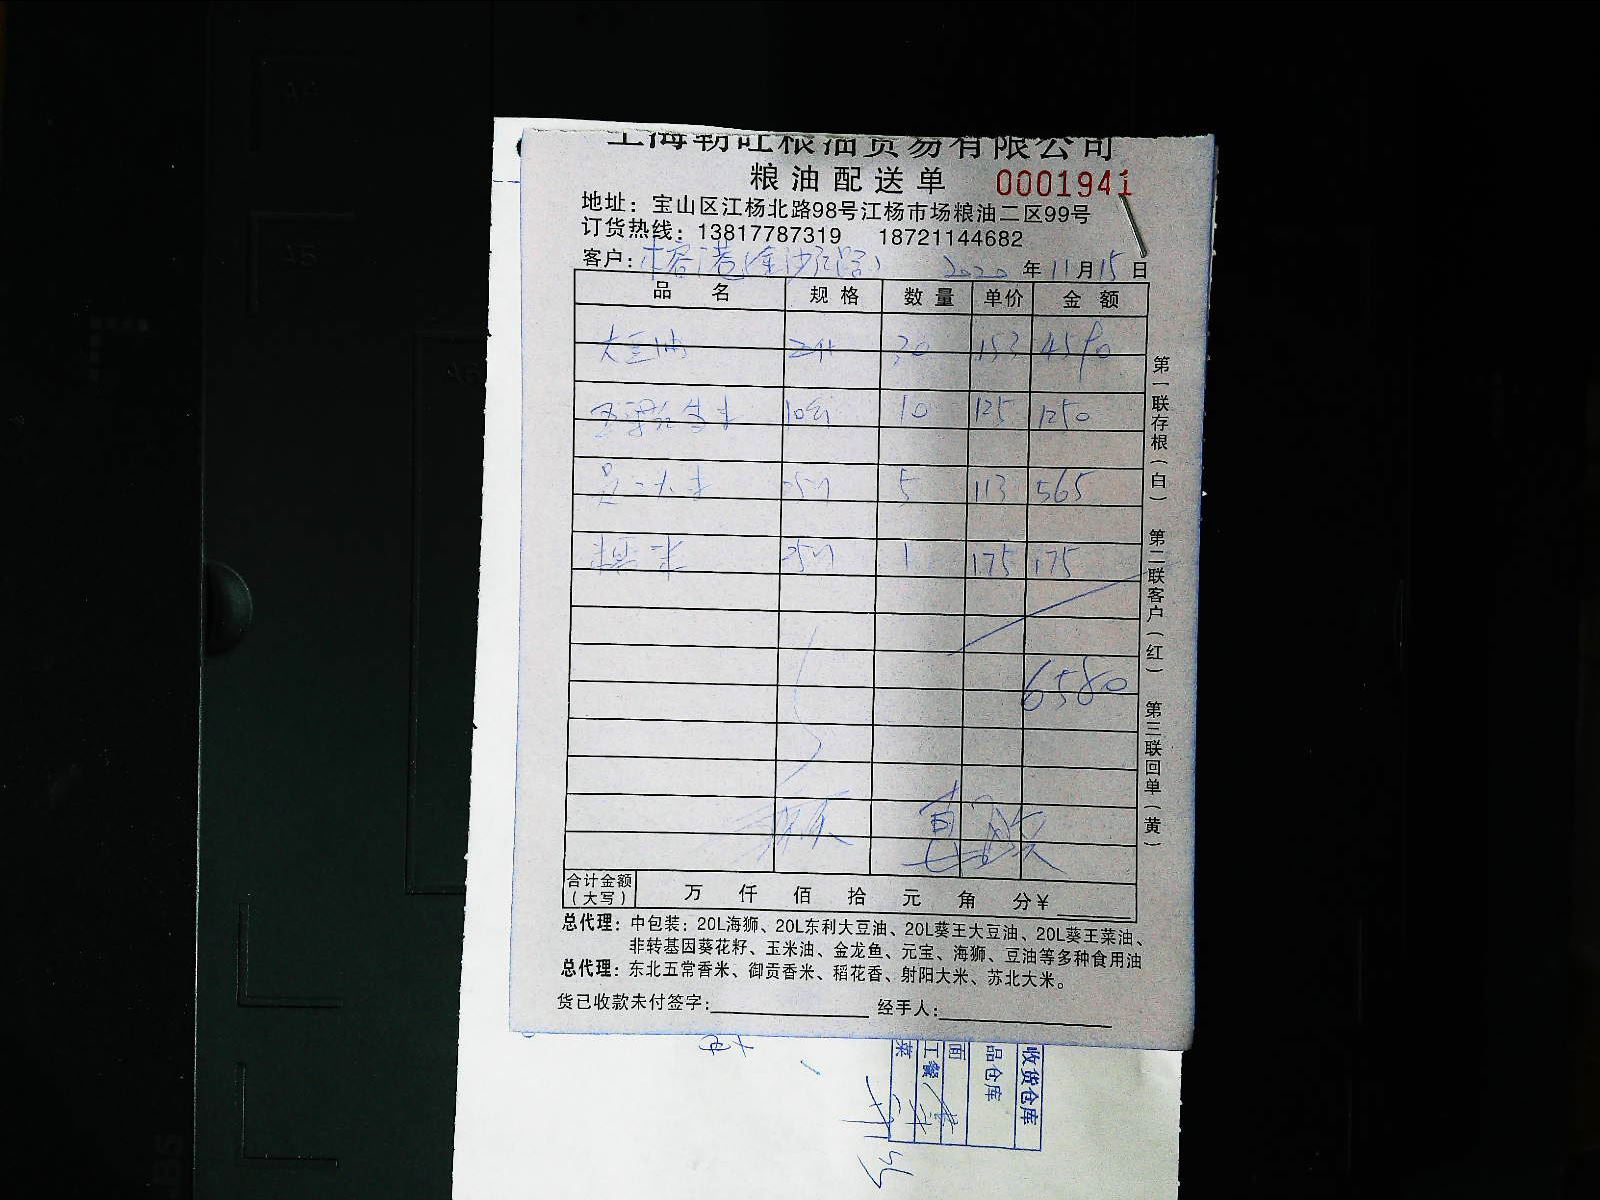 上海朝旺粮油贸易有限公司
粮油配送单 0001941
地址：宝山区江杨北路98号江杨市场粮油二区99号
订货热线：13817787319 18721144682
客户： 2020年11月15日
品 名 规 格 数 量 单价 金 额
大豆油 20 30 153 4590
10 125 1250
大米 5 113 565
糯米 1 175 175
6580
合计金额（大写） 万 仟 佰 拾 元 角 分￥
总代理：中包装：20L海狮、20L东利大豆油、20L葵王大豆油、20L葵王菜油、
非转基因葵花籽、玉米油、金龙鱼、元宝、海狮、豆油等多种食用油
总代理：东北五常香米、御贡香米、稻花香、射阳大米、苏北大米。
货已收款未付签字： 经手人：
第一联存根（白） 第二联客户（红） 第三联回单（黄）
收货仓库
品仓库
面
工餐
菜